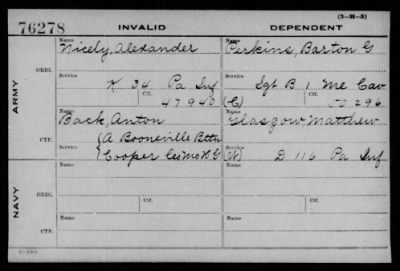 76278 INVALID DEPENDENT (3-31-5)
Name Name
Nicely, Alexander Perkins, Barton G
ARMY ORIG. Service Service
K 54 Pa Inf Sgt B 1 Me Cav
Ctf. Ctf.
47940 (C) 50296
Name Name
Back, Anton Glasgow, Matthew
CTF. Service
{A Booneville Bttn
{Cooper Co Mo H G (W) D 116 Pa Inf
Name Name
NAVY ORIG. Service Ctf. Service Ctf.
Name Name
CTF. Service Service